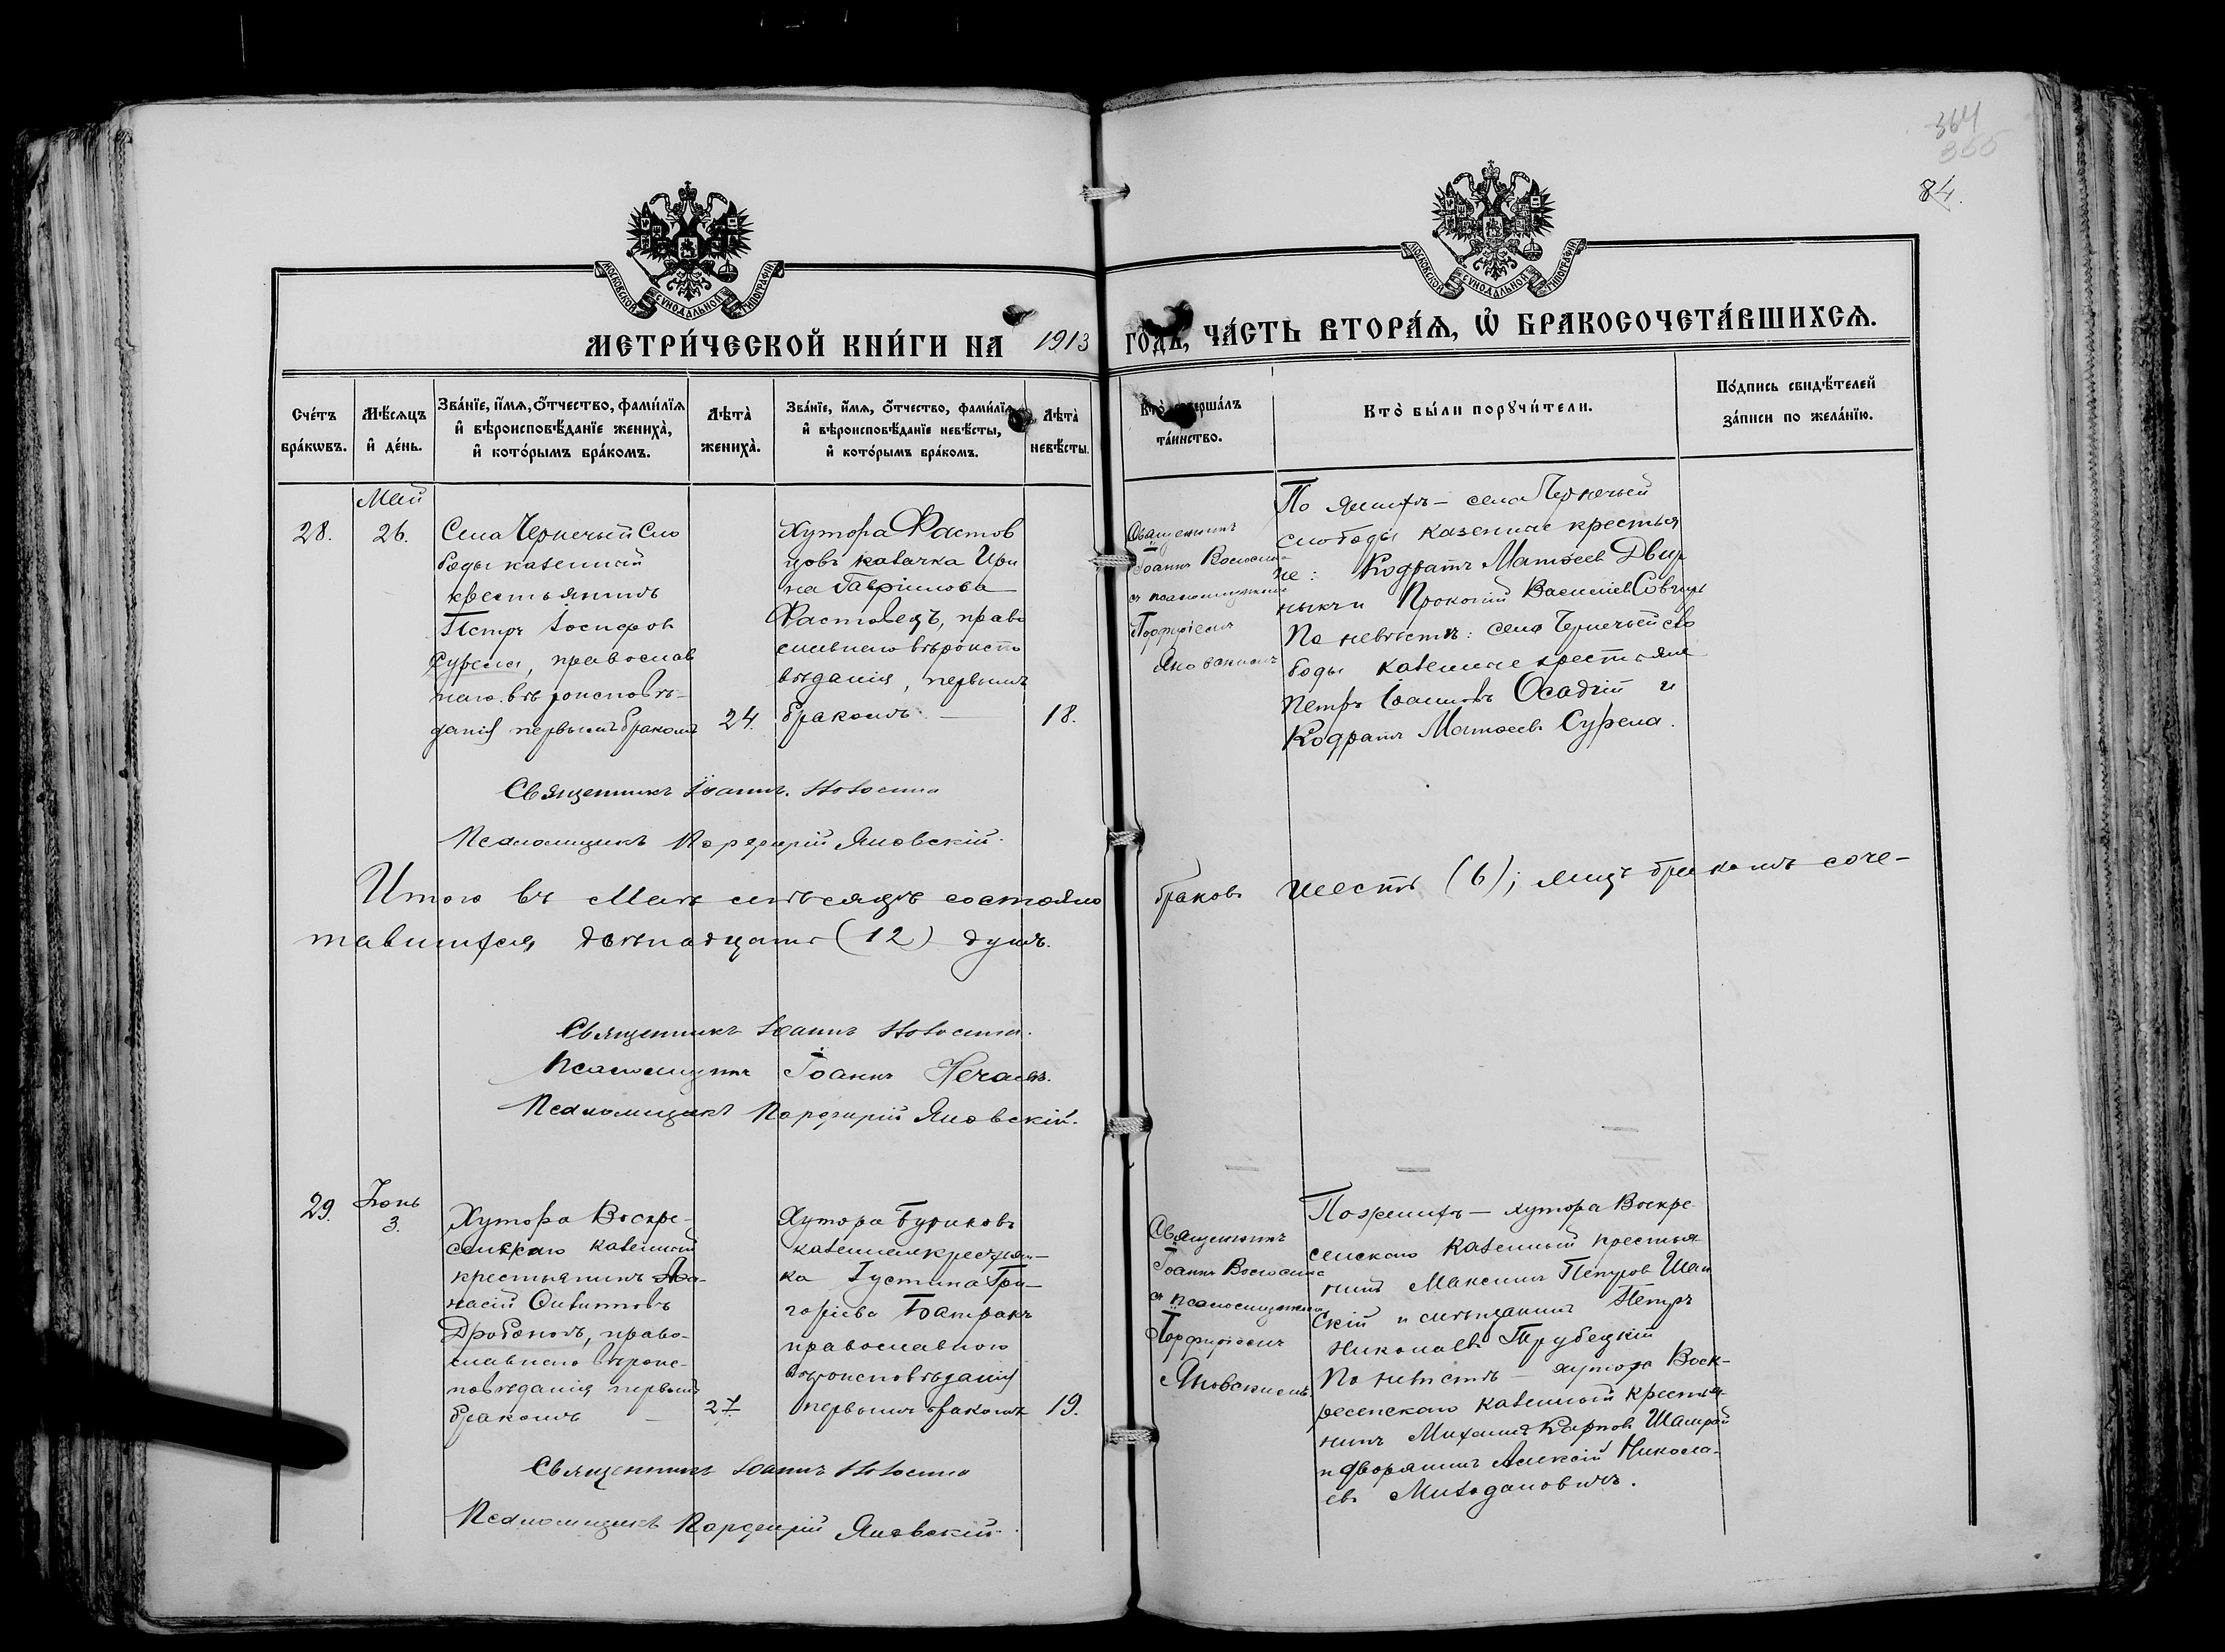 84.
МОСКОВСКОЙ СѴНОДАЛЬНОЙ ТИПОГРАФІИ
МОСКОВСКОЙ СѴНОДАЛЬНОЙ ТИПОГРАФІИ
МЕТРИ́ЧЕСКОЙ КНИ́ГИ НА 1913 ГОДЪ, ЧА́СТЬ ВТОРА́Ѧ, Ѡ҆ БРАКОСОЧЕТА́ВШИХСѦ.
Сче́тъ бра́кѡвъ.
Мѣ́сѧцъ и҆ де́нь.
Зва́нїе, и҆́мѧ, ѻ҆́тчество, фами́лїѧ
и҆ вѣроисповѣ́данїе жениха̀,
и҆ кото́рымъ бра́комъ.
Лѣта̀ жениха̀.
Зва́нїе, и҆́мѧ, ѻ҆́тчество, фами́лїѧ
и҆ вѣроисповѣ́данїе невѣ́сты,
и҆ кото́рымъ бра́комъ.
Лѣта̀ невѣ́сты.
Кто̀ соверша́лъ
та́инство.
Кто̀ бы́ли порꙋчи́тели.
По́дпись свидѣ́телей
за́писи по жела́нїю.
28.
Май
26.
Села Чернечьей Сло
боды казенный
крестьянинъ
Петръ Іосифов
Сурела, православ
наго вѣроисповѣ-
данія первымъ бракомъ
24.
Хутора Фастов
цовъ казачка Ири
на Гавріилова
Фастовецъ, право
славнаго вѣроиспо
вѣданія, первымъ
бракомъ. —
18.
Священникъ
Іоаннъ
съ псаломщикомъ
Порфиріемъ
Яновскимъ
По женихѣ — села Чернечьей
слободы казенные крестья
не: Кодратъ Матѳеев
и Прокопій Василіев
По невѣстѣ: села Чернечьей сло
боды казенные крестьяне
Петръ Іоанновъ Осадчій и
Кодратъ Матѳеевъ Сурела.
Священникъ Іоаннъ
Псаломщикъ Порфирій Яновскій.
Итого въ Маѣ мѣсяцѣ состояло браковъ шесть (6); лицъ бракомъ соче-
тавшихся двѣнадцать (12) душъ.
Священникъ Іоаннъ
Псаломщикъ Іоаннъ Нечаевъ.
Псаломщикъ Порфирій Яновскій.
29.
Іюнь
3.
Хутора Воскре-
сенскаго казенный
крестьянинъ Аѳа-
насій
православ-
славнаго вѣроис-
повѣданія первымъ
бракомъ —
27.
Хутора Буриковъ
казенная крестьян-
ка Іустина Гри-
горіева Батракъ
православнаго
вѣроисповѣданія
первымъ бракомъ
19.
Священникъ
Іоаннъ
съ псаломщикомъ
Порфиріемъ
Яновскимъ.
По женихѣ — хутора Воскре-
сенскаго казенный крестья-
нинъ Максимъ Петров
и мѣщанинъ Петръ
Николаевъ Трубецкій
По невѣстѣ — хутора Воск-
ресенскаго казенный крестья-
нинъ Михаилъ Карповъ Шамрай
и дворянинъ Алексій Никола-
евъ
Священникъ Іоаннъ
Псаломщикъ Порфирій Яновскій.